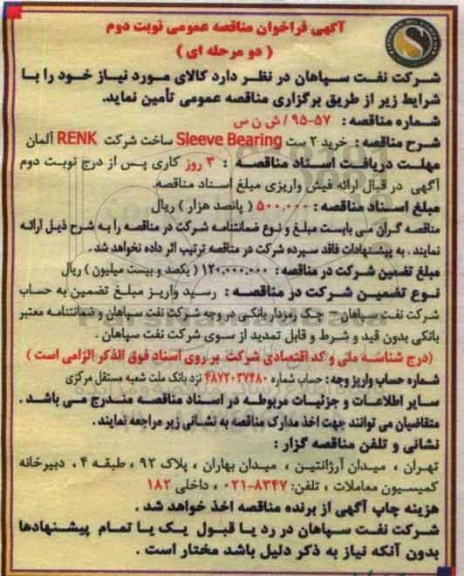 آگهی فراخوان مناقصه عمومی نوبت دوم
( دو مرحله ای )
شرکت نفت سپاهان در نظر دارد کالای مورد نیاز خود را با
شرایط زیر از طریق برگزاری مناقصه عمومی تأمین نماید.
شماره مناقصه : ۵۷-۹۵ / ش ن س
شرح مناقصه : خرید ۲ ست Sleeve Bearing ساخت شرکت RENK آلمان
مهلت دریافت اسناد مناقصه : ۳ روز کاری پس از درج نوبت دوم
آگهی در قبال ارائه فیش واریزی مبلغ اسناد مناقصه.
مبلغ اسناد مناقصه : ۵۰۰,۰۰۰ ( پانصد هزار ) ریال
مناقصه گران می بایست مبلغ و نوع ضمانتنامه شرکت در مناقصه را به شرح ذیل ارائه
نمایند . به پیشنهادات فاقد سپرده شرکت در مناقصه ترتیب اثر داده نخواهد شد .
مبلغ تضمین شرکت در مناقصه : ۱۲۰,۰۰۰,۰۰۰ ( یکصد و بیست میلیون ) ریال
نوع تضمین شرکت در مناقصه : رسید واریز مبلغ تضمین به حساب
شرکت نفت سپاهان - چک رمزدار بانکی در وجه شرکت نفت سپاهان و ضمانتنامه معتبر
بانکی بدون قید و شرط و قابل تمدید از سوی شرکت نفت سپاهان .
(درج شناسه ملی و کد اقتصادی شرکت بر روی اسناد فوق الذکر الزامی است )
شماره حساب واریز وجه : حساب شماره ۴۸۷۲۰۳۷۴۸۰ نزد بانک ملت شعبه مستقل مرکزی
سایر اطلاعات و جزئیات مربوطه در اسناد مناقصه مندرج می باشد .
متقاضیان می توانند جهت اخذ مدارک مناقصه به نشانی زیر مراجعه نمایند .
نشانی و تلفن مناقصه گزار :
تهران ، میدان آرژانتین ، میدان بهاران ، پلاک ۹۲ ، طبقه ۴ ، دبیرخانه
کمیسیون معاملات ، تلفن: ۸۳۴۷-۰۲۱ ، داخلی ۱۸۲
هزینه چاپ آگهی از برنده مناقصه اخذ خواهد شد .
شرکت نفت سپاهان در رد یا قبول یک یا تمام پیشنهادها
بدون آنکه نیاز به ذکر دلیل باشد مختار است .